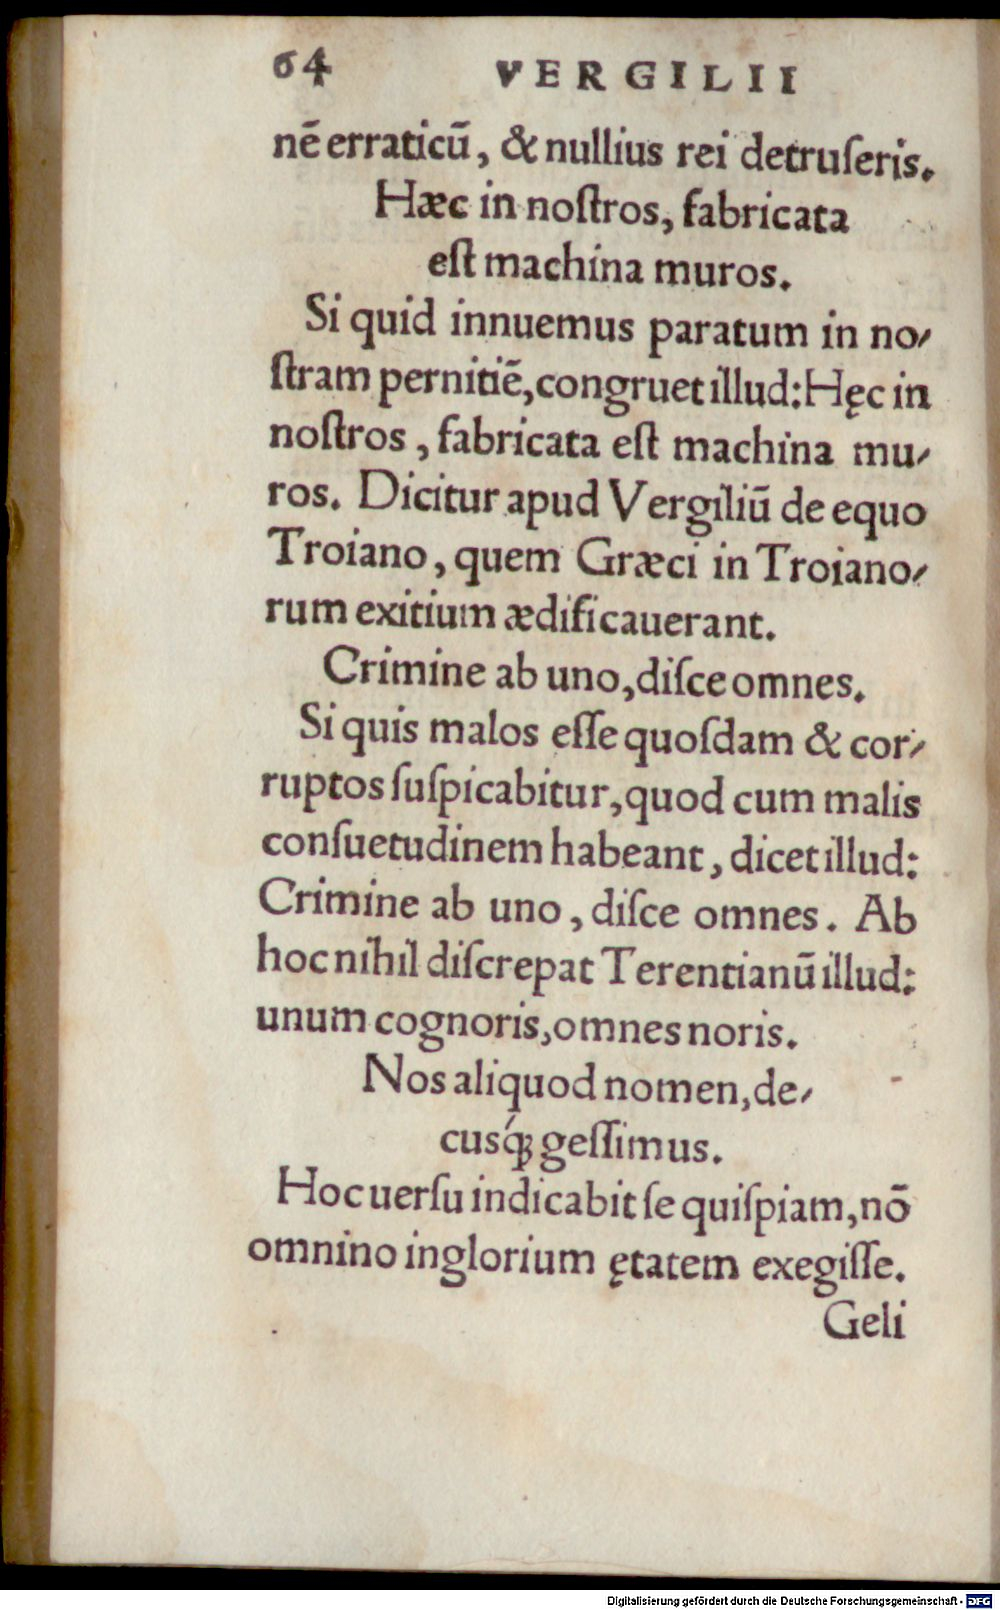 64 VERGILII
nē erraticū, & nullius rei detruſeris.
Hæc in noſtros, fabricata
eſt machina muros.
Si quid innuemus paratum in no⸗
ſtram pernitiē, congruet illud: Hęc in
noſtros, fabricata eſt machina mu⸗
ros. Dicitur apud Vergiliū de equo
Troiano, quem Græci in Troiano⸗
rum exitium ædificauerant.
Crimine ab uno, diſce omnes.
Si quis malos eſſe quoſdam & cor⸗
ruptos ſuſpicabitur, quod cum malis
conſuetudinem habeant, dicet illud:
Crimine ab uno, diſce omnes. Ab
hoc nihil diſcrepat Terentianū illud:
unum cognoris, omnes noris.
Nos aliquod nomen, de⸗
cusq́ꝫ geſſimus.
Hoc uerſu indicabit ſe quiſpiam, nō
omnino inglorium ętatem exegiſſe.
Geli
Digitalisierung gefördert durch die Deutsche Forschungsgemeinschaft - DFG